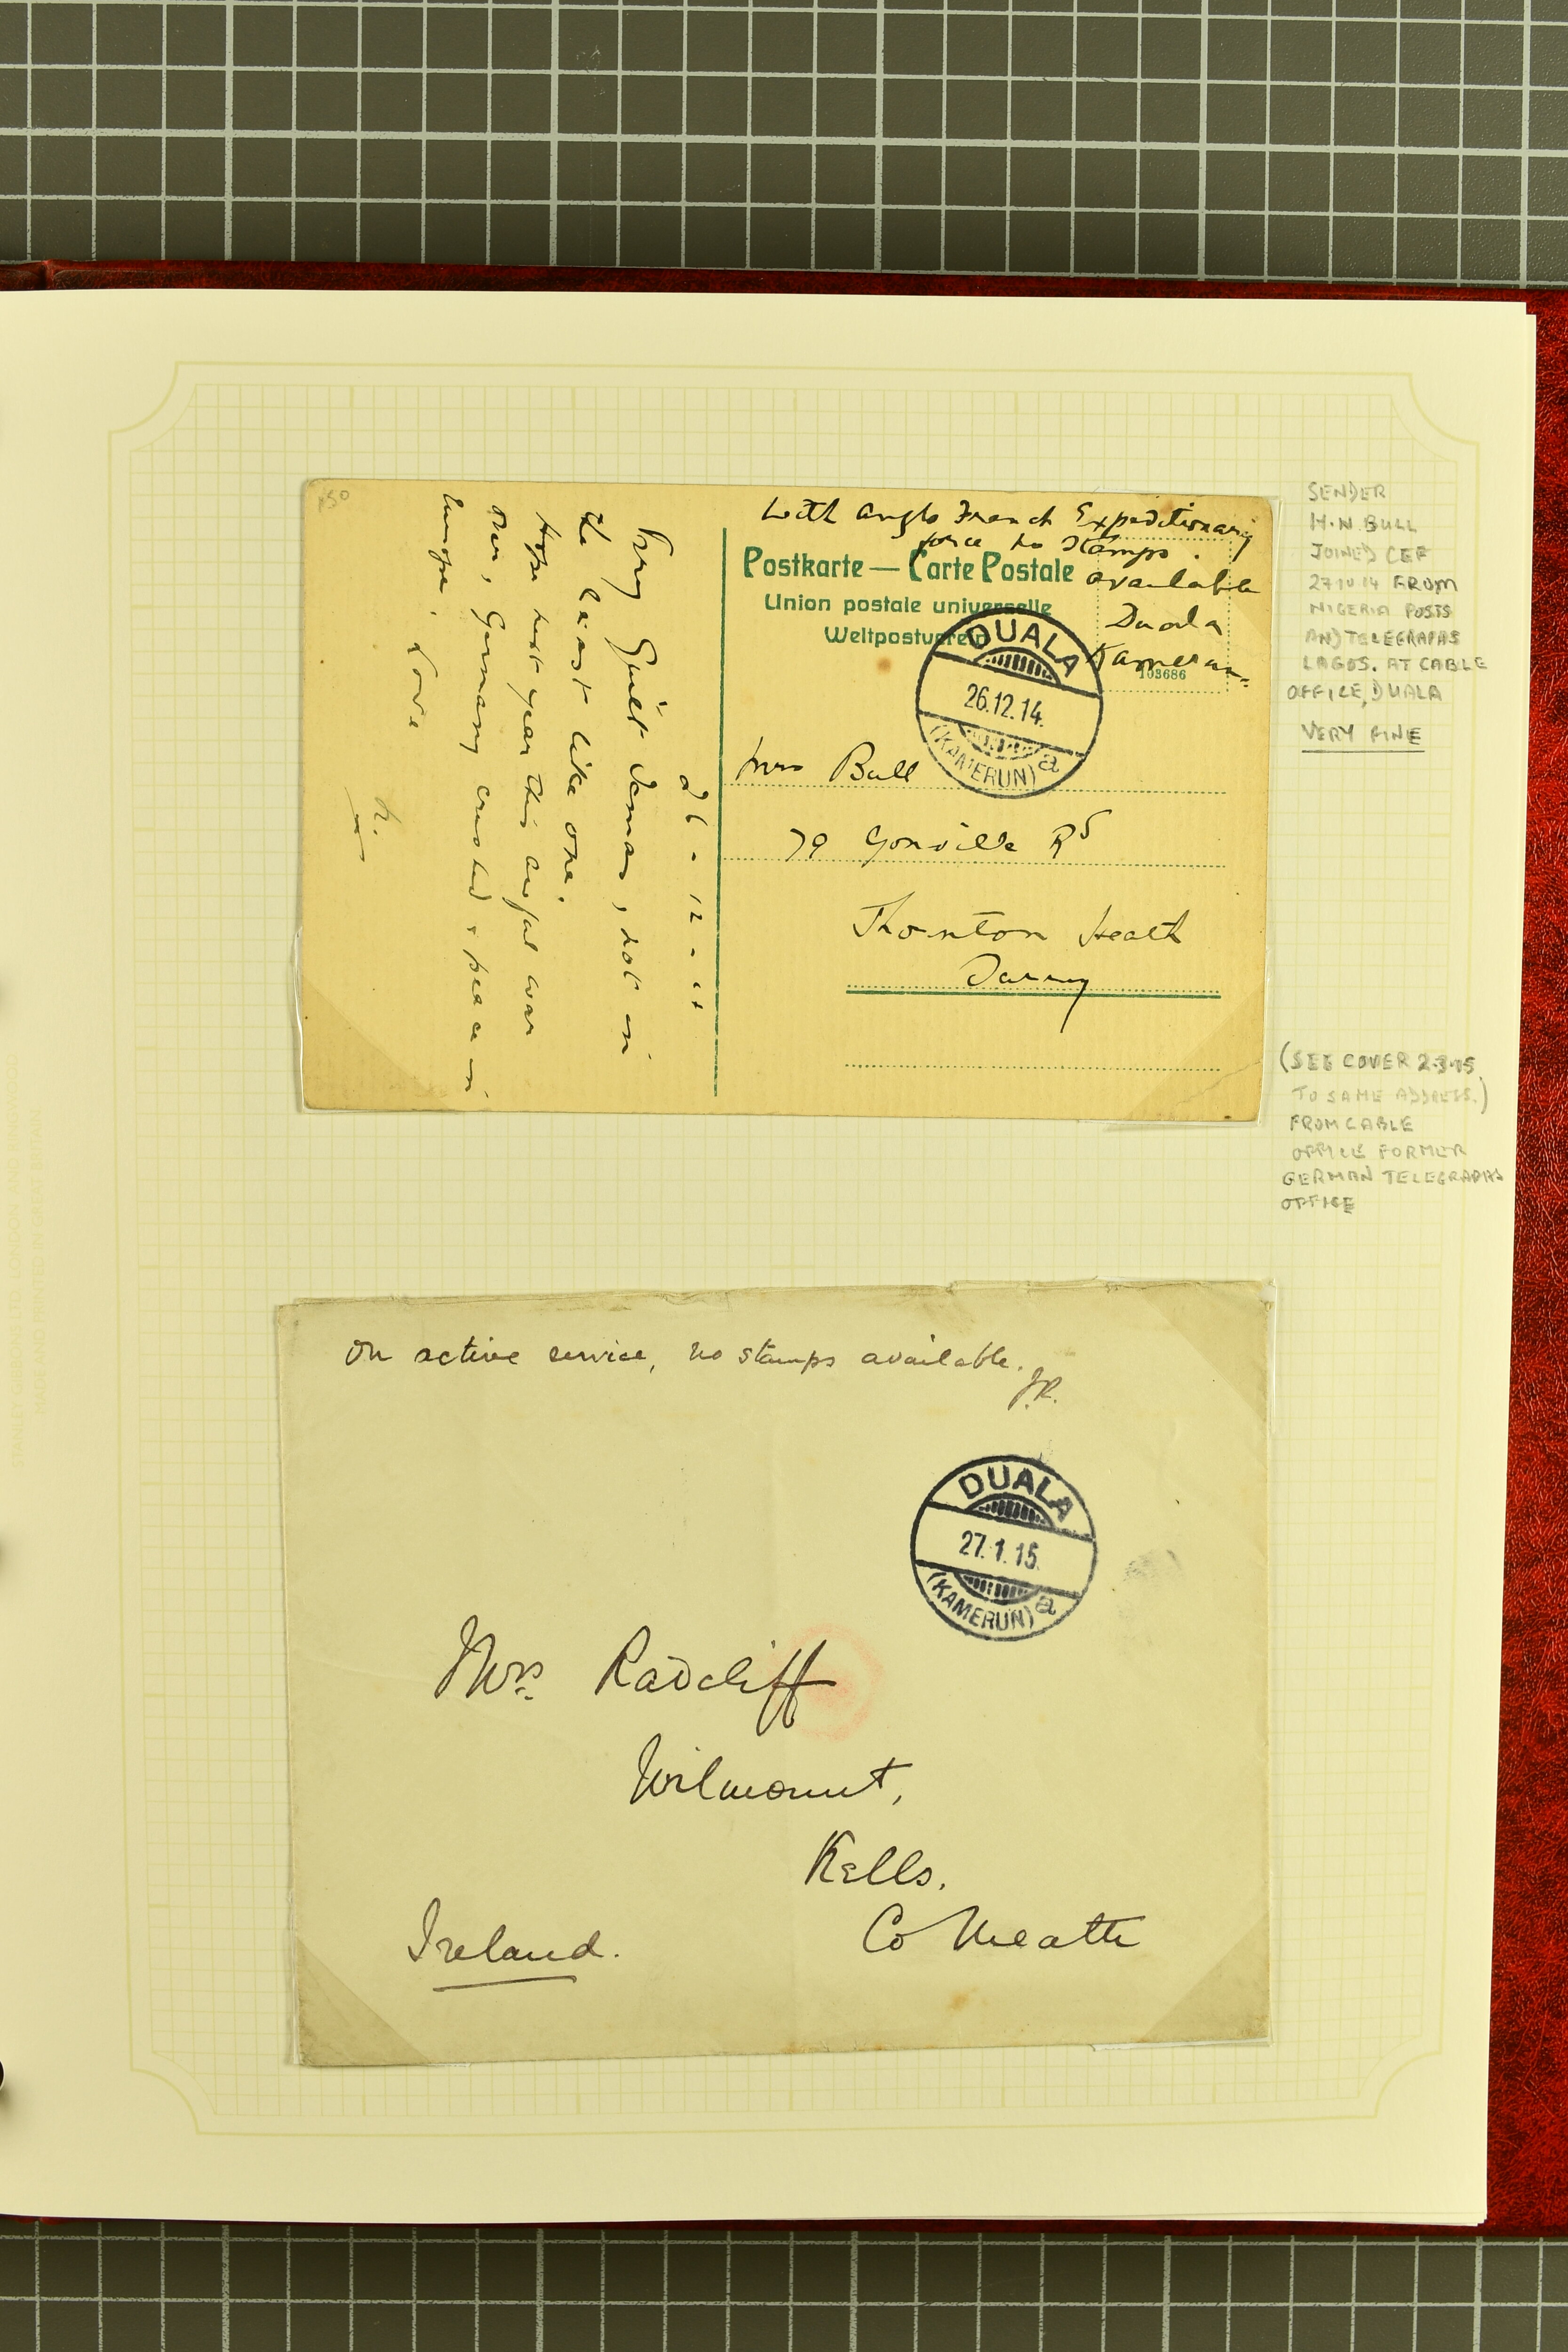 With Anglo French Expeditionary
force no Stamps.
available
Duala
Kamerun
Postkarte — Carte Postale
Union postale universelle
Weltpostverein
103686
DUALA
26.12.14.
(KAMERUN) a
Mrs Bull
79 Gonville Rd
Thornton Heath
Surrey
26-12-14
Very Quiet Xmas, not in
the least like one.
Hope next year this awful war
over, Germany crushed & peace in
Europe.
Love
H.
150
SENDER
H.N. BULL
JOINED CEF
27 10 14 FROM
NIGERIA POSTS
AND TELEGRAPHS
LAGOS. AT CABLE
OFFICE, DUALA
VERY FINE
(SEE COVER 2.3.15
TO SAME ADDRESS.)
FROM CABLE
OFFICE FORMER
GERMAN TELEGRAPHS
OFFICE
On active service, no stamps available.
J.R.
DUALA
27.1.15.
(KAMERUN) a
Mrs. Radcliff
Wilmount,
Kells.
Co Meath
Ireland.